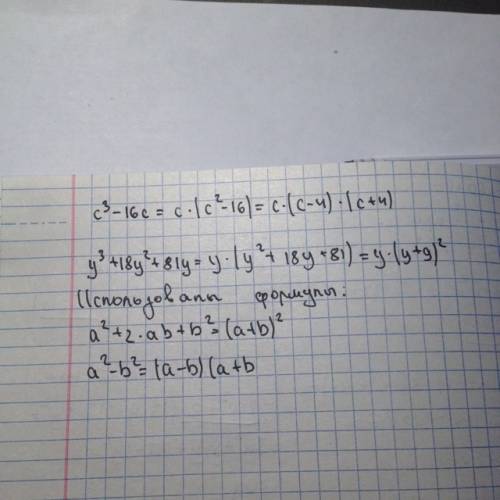 c³-16c = c·(c²-16) = c·(c-4)·(c+4)
y³+18y²+81y = y·(y²+18y+81) = y·(y+9)²
Использованы формулы:
a²+2·ab+b² = (a+b)²
a²-b² = (a-b)(a+b